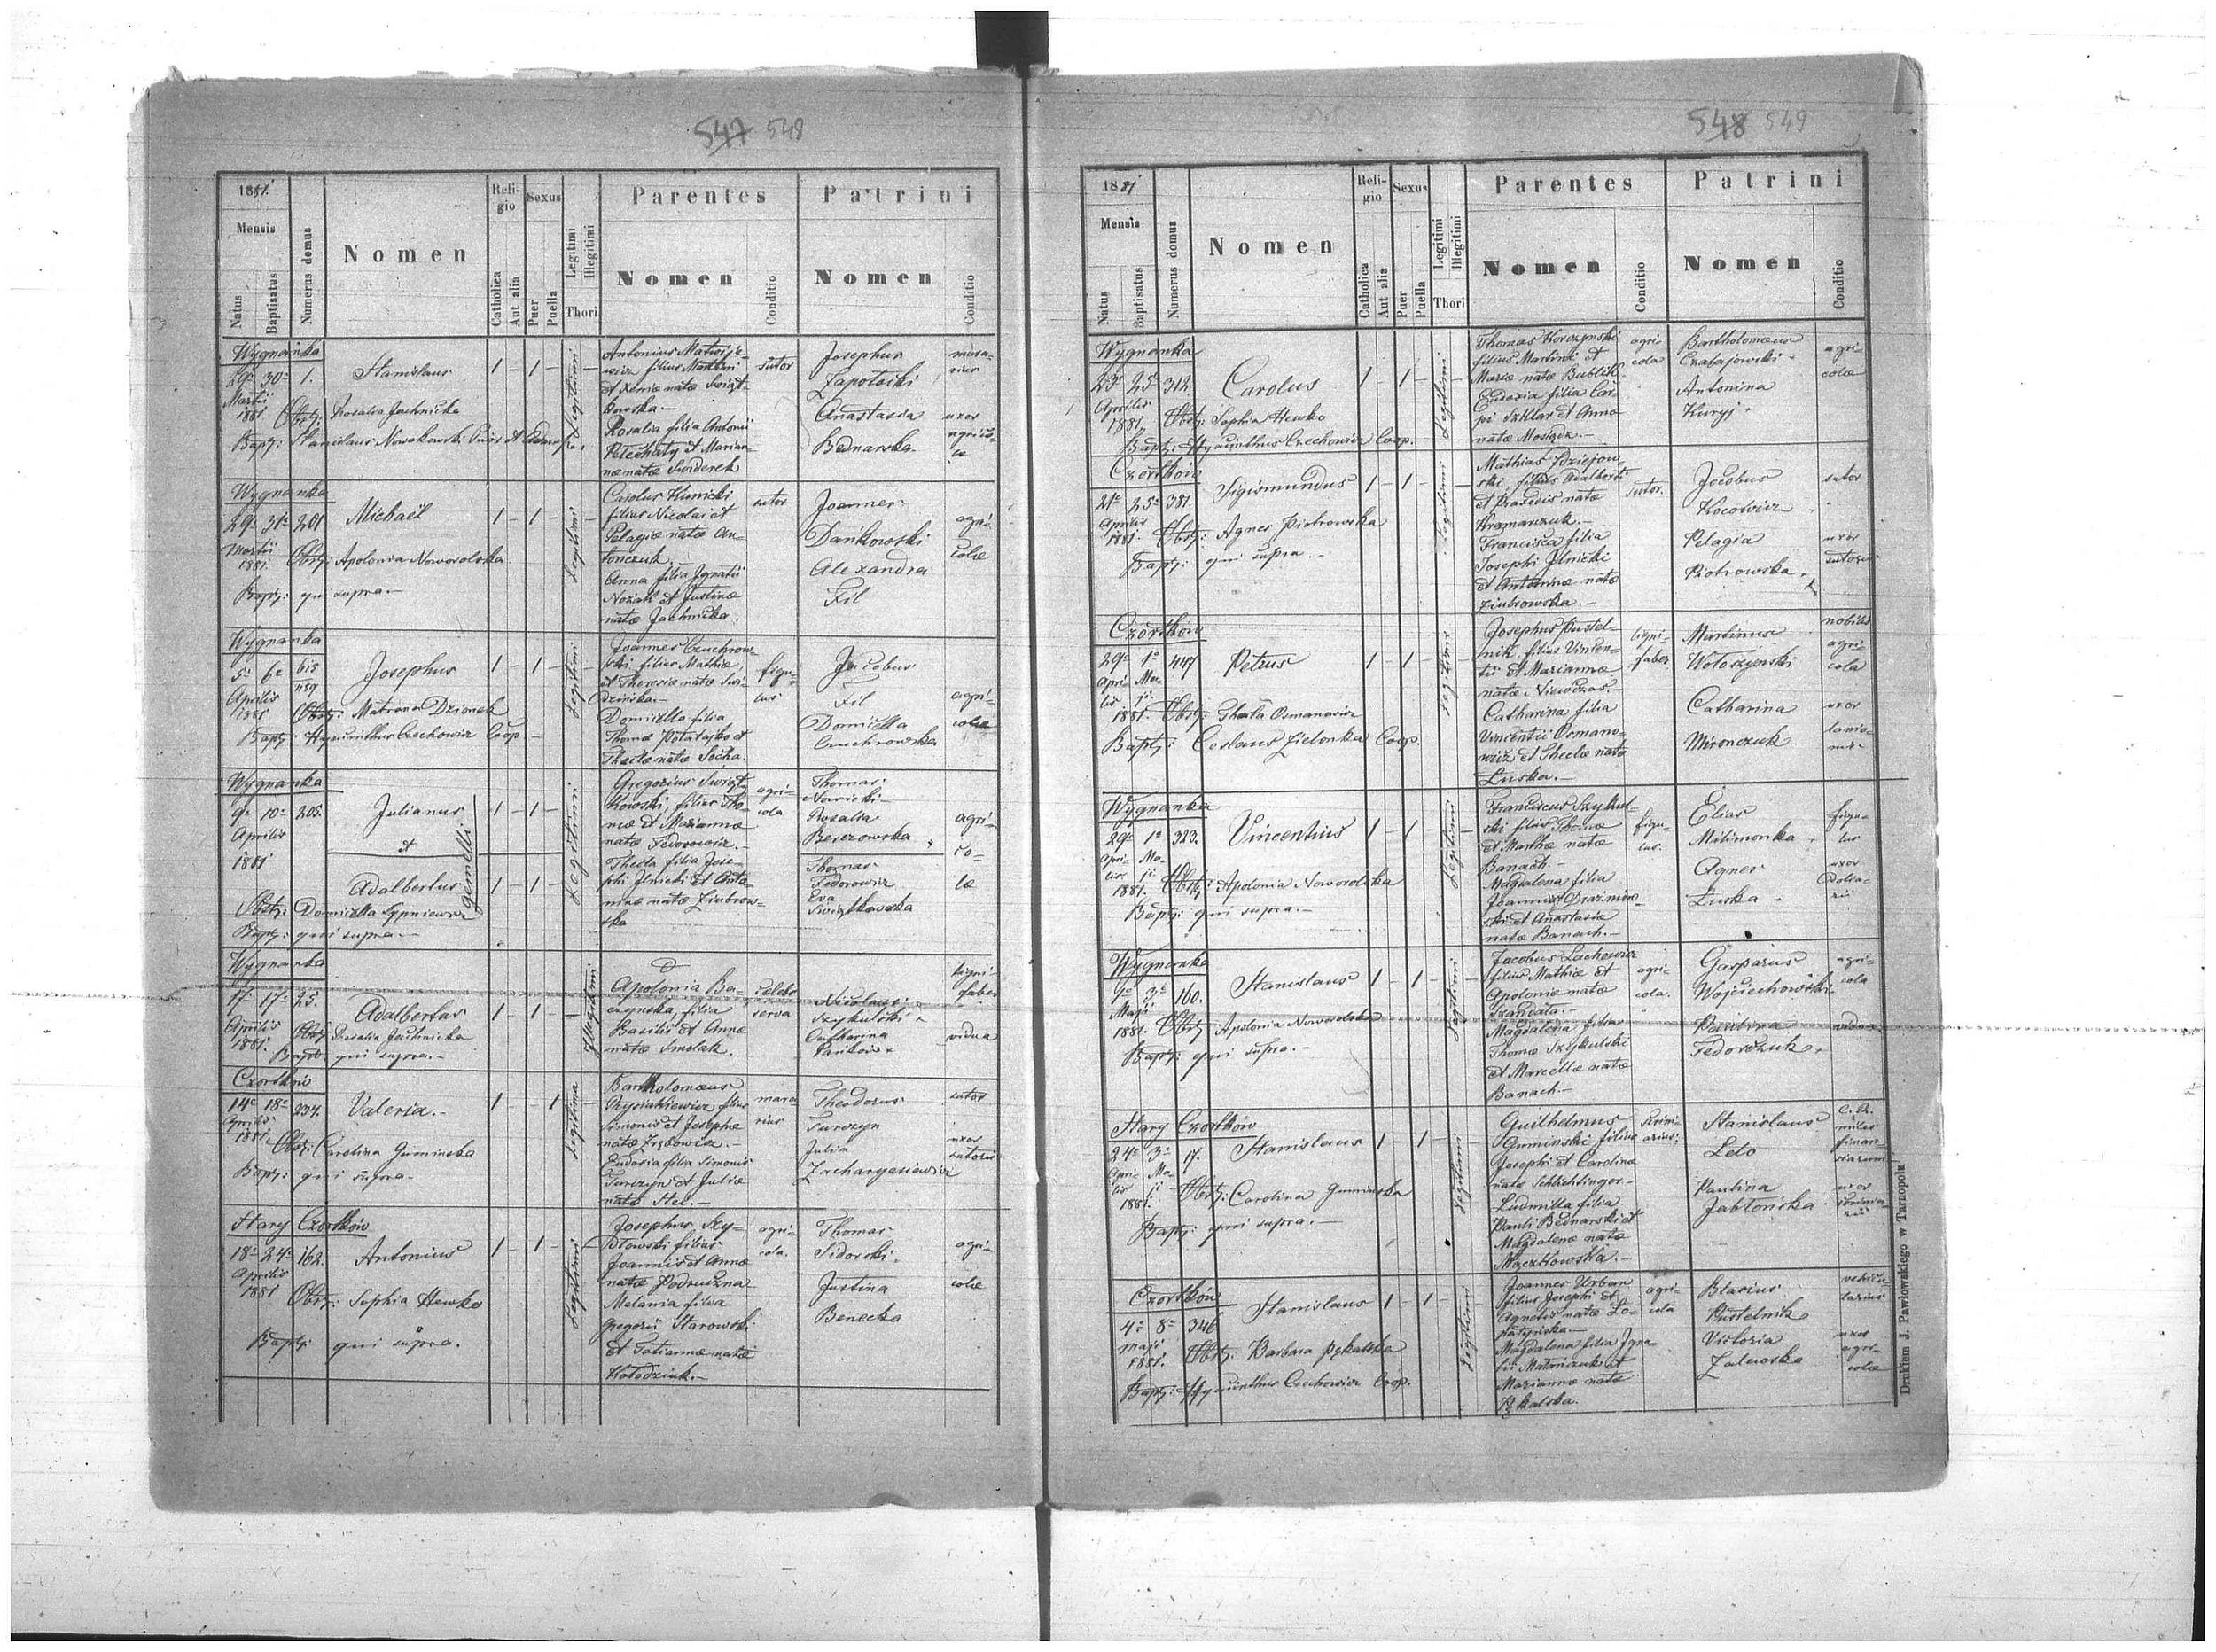 547 548
1881.
Mensis
Natus
Baptisatus
Numerus domus
Nomen
Religio
Catholica
Aut alia
Sexus
Puer
Puella
Legitimi
Illegitimi
Thori
Parentes
Nomen
Conditio
Patrini
Nomen
Conditio
Wygnanka
29a 30a 1.
Martii
1881
Stanislaus
1 - 1 -
Legitimi
Obstz: Rosalia Jachnicka
Bapt: Stanislaus Nowakowski
Antonius Matwije-
wicz filius Martini
et Xeniæ natæ Swiąt-
kowska.-
Rosalia filia Antonii
Pelechaty et Marian-
næ natæ Swiderek
sutor
Josephus
Zapotocki
Anastasia
Bednarska
mura-
rius
uxor
agrico-
læ
Wygnanka
29a 31a 201
Martii
1881.
Michaël
1 - 1 -
Legitimi
Obstz: Apolonia Noworolska
Bapt: qui supra.-
Carolus Kunicki
filius Nicolai et
Pelagiæ natæ An-
tonczuk.
Anna filia Ignatii
Nozak et Justinæ
natæ Jachnicka.
sutor
Joannes
Dankowski
Alexandra
Fil
agri-
colæ
Wygnanka
5a 6a bis
489
Aprilis
1881
Josephus
1 - 1 -
Legitimi
Obstz: Matrona Dzionek
Bapt: Hyacinthus Czechowicz Coop -
Joannes Czuchrow-
ski filius Mathiæ,
et Theresiæ natæ Swi-
dzinska.-
Domicilla filia
Thomæ Potatajko et
Theclæ natæ Socha.
figu-
lus
Jacobus
Fil
Domicilla
Czuchrowska
agri-
colæ
Wygnanka
9a 10a 205.
Aprilis
1881
Julianus
et
Adalbertus
gemelli
1 - 1 -
1 - 1 -
Legitimi
Obstz: Domicilla Sypniewicz
Bapt: qui supra.-
Gregorius Swiąt-
kowski, filius Tho-
mæ et Mariannæ
natæ Fedorowicz.-
Thecla filia Jose-
phi Ilnicki et Anto-
ninæ natæ Ziubrow-
ska
agri-
cola
Thomas
Nowicki
Rosalia
Berezowska
Thomas
Fedorowicz
Eva
Swiątkowska
agri-
co-
læ
Wygnanka
17a 17a 25.
Aprilis
1881.
Adalbertus
1 - 1 -
Illegitimi
Obstz Rosalia Jachnicka
Bapt: qui supra.-
Apolonia Ba-
czynska, filia
Basilii et Annæ
natæ Smolak.
cælebs
serva
Nicolaus
Szykulski
Catharina
Pańków
ligni-
faber
vidua
Czortków
14a 18a 234.
Aprilis
1881.
Valeria.-
1 - 1
Legitima
Obst: Carolina Guminska
Bapt: qui supra-
Bartholomæus
Krysiakiewicz filius
Simonis et Josephæ
natæ Ziębowicz.-
Eudosia filia Simonis
Turczyn et Juliæ
natæ Stec.-
mura-
rius
Theodorus
Turczyn
Julia
Zacharyasiewicz
sutor
uxor
sutoris
Stary Czortków
18a 24a 162.
Aprilis
1881
Antonius
1 - 1 -
Legitimi
Obstz: Sophia Hewko
Bapt: qui supra.
Josephus Szy-
dłowski filius
Joannis et Annæ
natæ Podruczna
Melania filia
Gregorii Starowski
et Tatiannæ natæ
Kołodziuk.-
agri-
cola.
Thomas
Sidorski
Justina
Benecka
agri-
colæ
548 549
1881
Mensis
Natus
Baptisatus
Numerus domus
Nomen
Religio
Catholica
Aut alia
Sexus
Puer
Puella
Legitimi
Illegitimi
Thori
Parentes
Nomen
Conditio
Patrini
Nomen
Conditio
Wygnanka
23a 25a 312
Aprilis
1881.
Carolus
1 - 1 -
Legitimi
Obst: Sophia Hewko
Bapt: Hyacinthus Czechowicz Coop.
Thomas Korczynski
filius Martini et
Mariæ natæ Bublik.
Eudoxia filia Car-
pi Szklar et Annæ
natæ Mosiądz.-
agri-
cola
Bartholomæus
Czabajowski
Antonina
Kuryj
agri-
colæ
Czortków
21a 25a 381.
Aprilis
1881.
Sigismundus
1 - 1 -
Legitimi
Obstz: Agnes Piotrowska
Bapt: qui supra.-
Mathias Idziejow-
ski, filius Adalberti
et Praxedis natæ
Hramanzuk.-
Francisca filia
Josephi Ilnicki
et Antoninæ natæ
Ziubrowska.-
sutor.
Jacobus
Kocowicz
Pelagia
Piotrowska
sutor
uxor
sutoris
Czortków
29a 1a 447
Apri- Ma-
lis ji
1881.
Petrus
1 - 1 -
Legitimi
Obstz: Thecla Osmanowicz
Bapt: Ceslaus Zielonka Coop.
Josephus Pustel-
nik, filius Vincen-
tii et Mariannæ
natæ Niewczas.-
Catharina filia
Vincentii Osmano-
wicz et Theclæ natæ
Luska.-
ligni-
faber
Martinus
Wołoszyński
Catharina
Mironczuk
nobilis
agri-
cola
uxor
lanio-
nis
Wygnanka
29a 1a 323.
Apri- Ma-
lis ji
1881.
Vincentius
1 - 1 -
Legitimi
Obstz: Apolonia Noworolska
Bapt: qui supra.-
Franciscus Szykul-
ski filius Thomæ
et Marthæ natæ
Banach.-
Magdalena filia
Joannis Drazniow-
ski et Anastasiæ
natæ Banach.-
figu-
lus.
Elias
Milimonka
Agnes
Luska
figu-
lus
uxor
dolia-
rii
Wygnanka
1a 3a 160.
Maji
1881.
Stanislaus
1 - 1 -
Legitimi
Obstz Apolonia Noworolska
Bapt: qui supra.-
Jacobus Lachowicz
filius Mathiæ et
Apoloniæ natæ
Szandata.-
Magdalena filia
Thomæ Szykulski
et Marcellæ natæ
Banach.-
agri-
cola.
Gasparus
Wojciechowski
Paulina
Fedorczuk
agri-
cola
vidua
Stary Czortków
24a 3a 17.
Apri- Ma-
lis ji
1881.
Stanislaus
1 1 -
Legitimi
Obstz: Carolina Guminska
Bapt: qui supra.-
Guilhelmus
Guminski filius
Josephi et Carolinæ
natæ Schlichtinger.-
Ludmilla filia
Pauli Bednarski et
Magdalenæ natæ
Mączkowska.-
Stanislaus
Leto
Paulina
Jabłońska
c. r.
miles
finan-
ciarum
uxor
Czortków
4a 8a 346
Maji
1881.
Stanislaus
1 - 1 -
Legitimi
Obstz: Barbara Pękalska
Bapt: Hyacinthus Czechowicz Coop.
Joannes Urban
filius Josephi et
Agnetis natæ Lo-
patyńska.-
Magdalena filia Igna-
tii Matowczuk et
Mariannæ natæ
Pękalska.
agri-
cola
Blasius
Pustelnik
Victoria
Zalewska
uxor
agri-
colæ
Drukiem J. Pawłowskiego w Tarnopolu